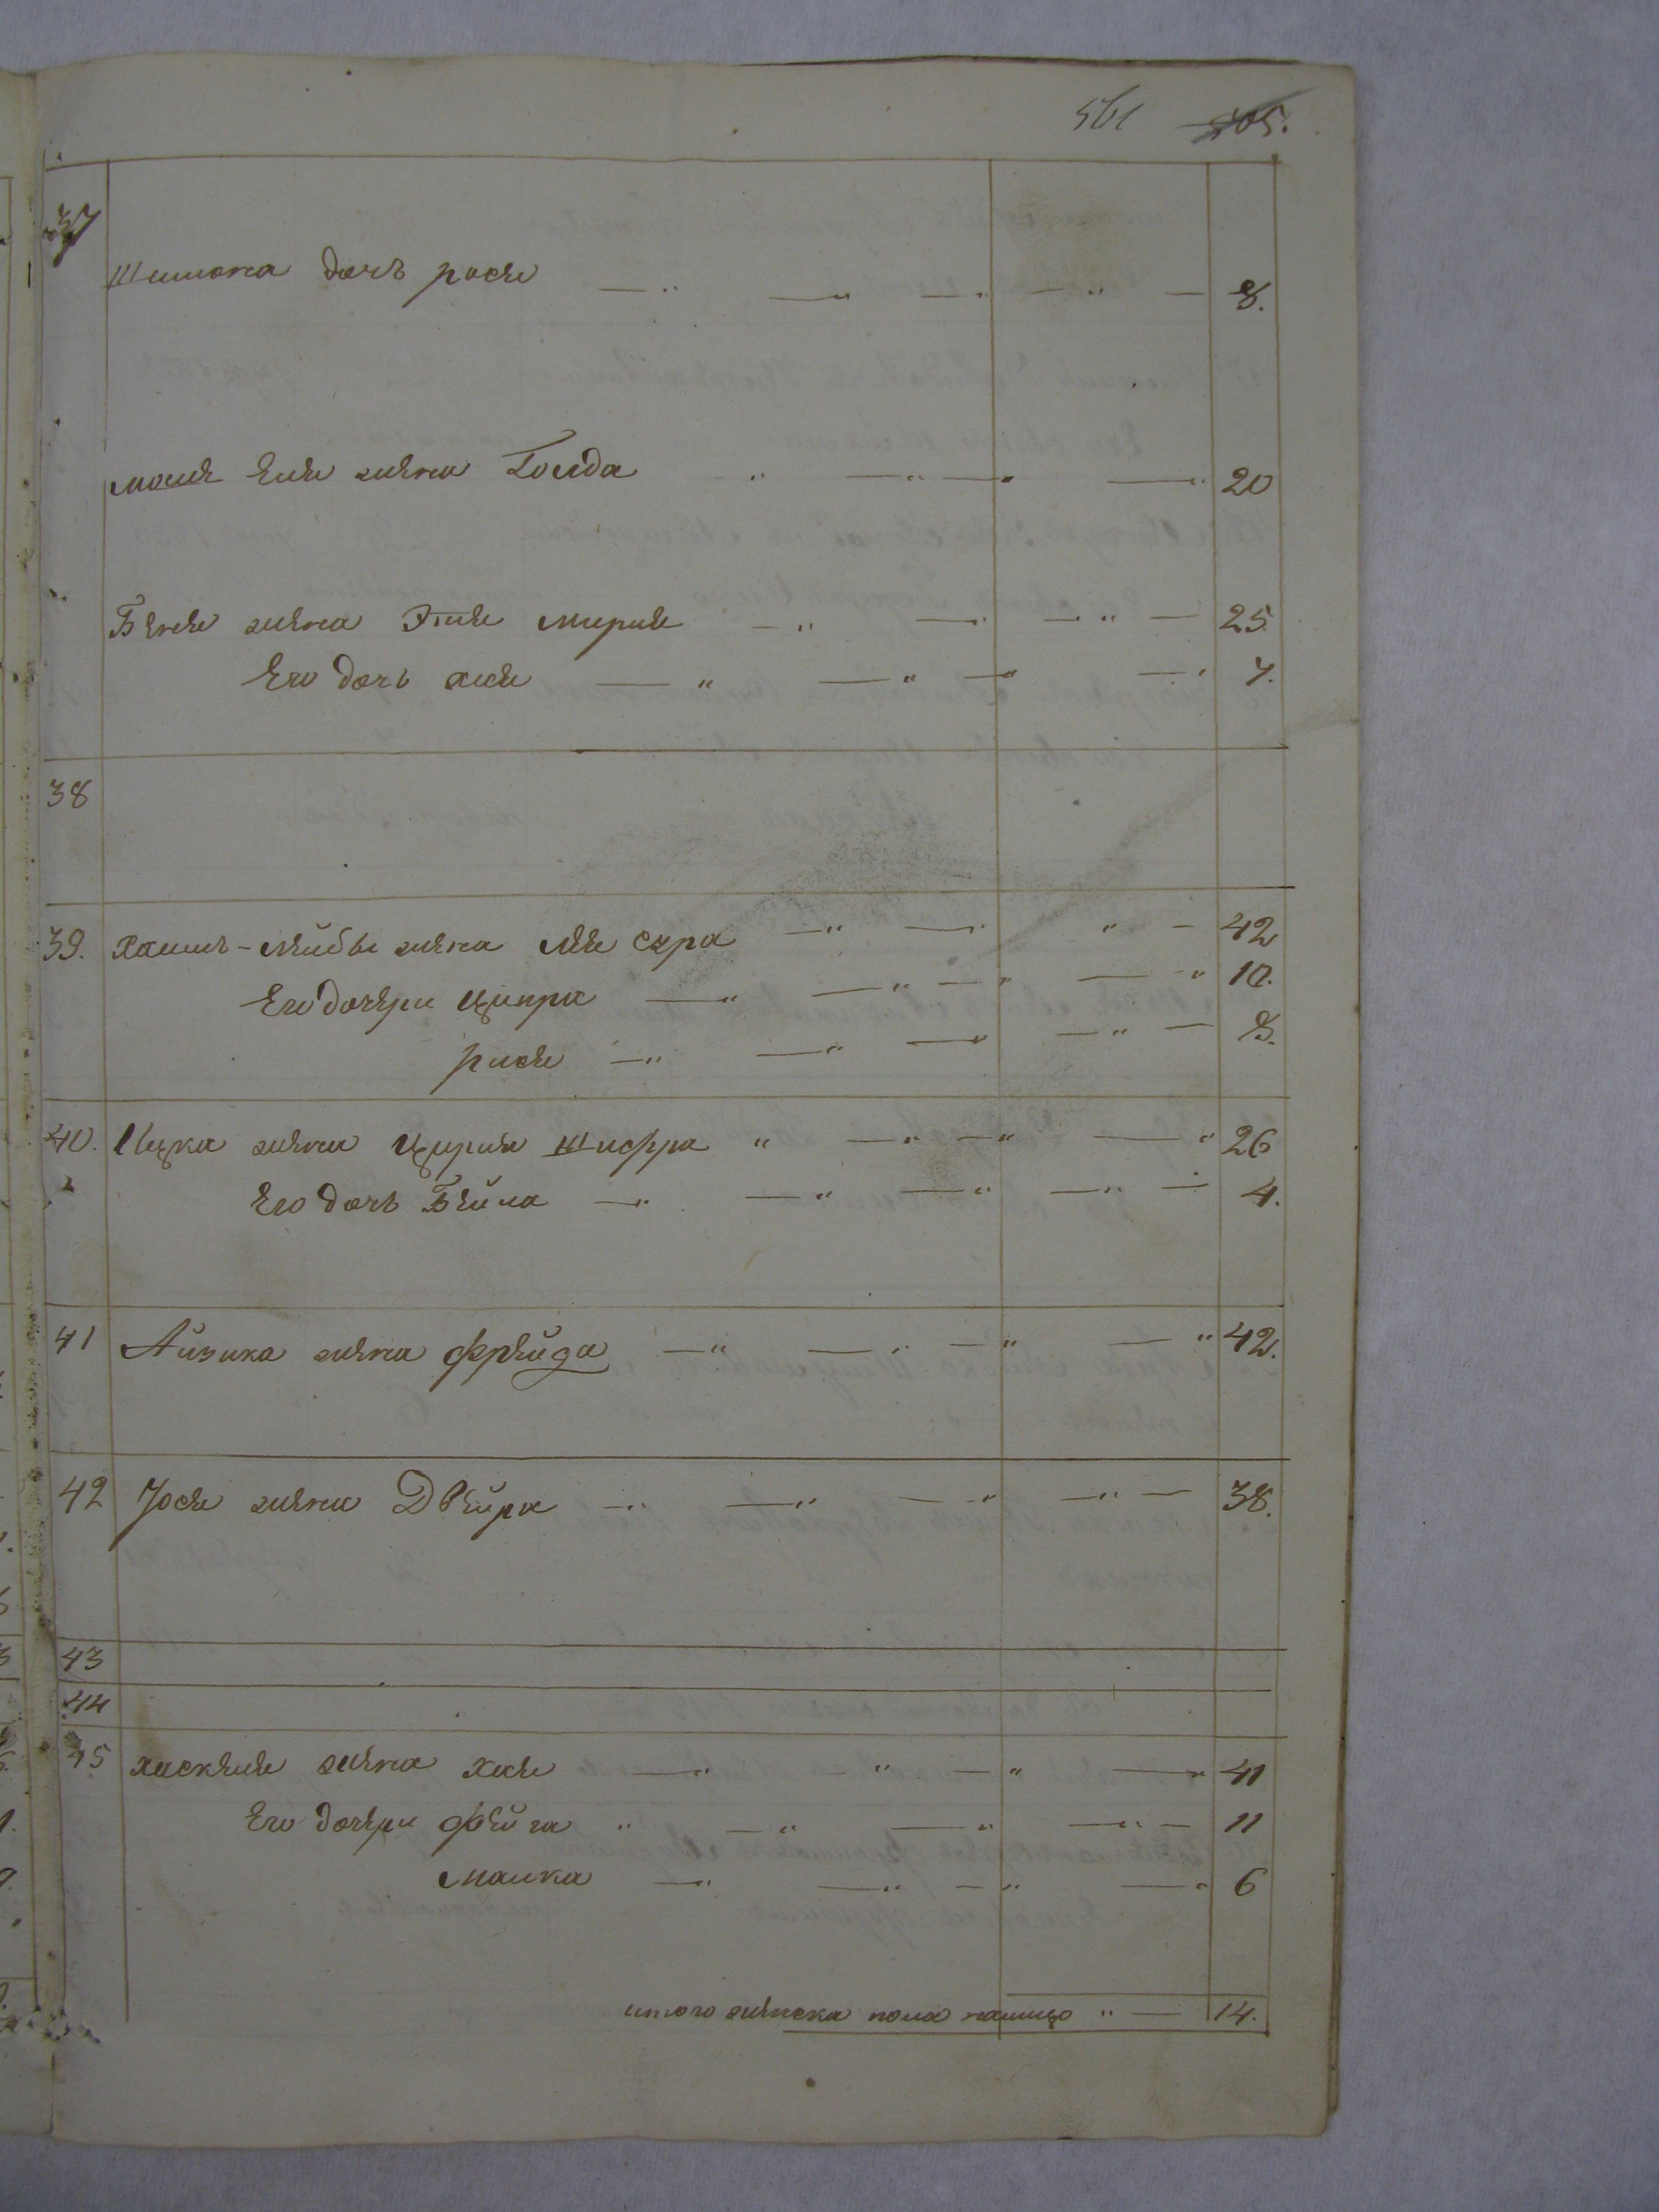 561 505.
37
Шимона дочь рося — " — " — " — " — 8.
Моше Еля жена Голда " — " — " — " 20
Беня жена Этля мирля — " — " — " — 25.
Его дочь хая — " — " — " — " 7.
38
39. Хаимъ-Лейбы жена Лея сура — " — " " — 42
Его дочери Ципра — " — " — " — " 10.
рися — " — " — " — " — 8.
40. Ицка жена Цирля шифра " — " — " — " 26
Его дочь Бейла — " — " — " — " — 4.
41 Айзика жена Фрейда — " — " — " — " 42.
42 Іося жена Двейра — " — " — " — " — 38.
43
44
45 хаскеля жена хая — " — " — " — " 41
Его дочери Фейга " — " — " — " — 11
Малка — " — " — " — " 6
итого женска пола налицо " — 14.